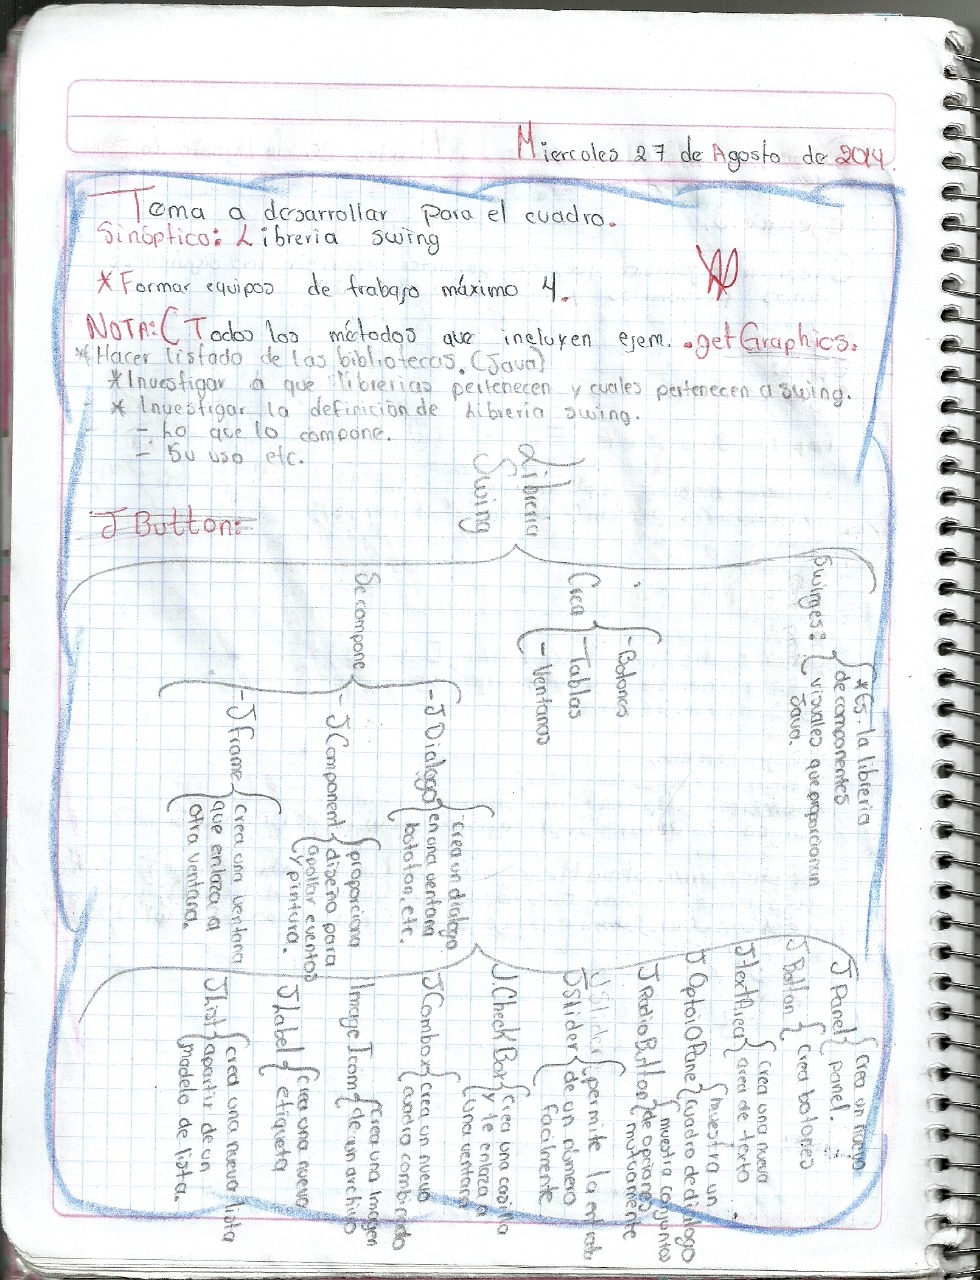 Miercoles 27 de Agosto de 2014.
Tema a desarrollar para el cuadro.
Sinóptico: Libreria swing
*Formar equipos de trabajo máximo 4.
NOTA: ( Todos los métodos que incluyen ejem. .getGraphics.
*Hacer listado de las bibliotecas. (Java)
*Investigar a que librerias pertenecen y cuales pertenecen a swing.
* Investigar la definición de Libreria swing.
- Lo que lo compone.
- Su uso etc.
J Button:
Libreria
Swing
Swing es:
*Es la libreria
de componentes
visuales que proporcionan
Java.
Crea
-Botones
-Tablas
-Ventanas
Se compone
-JDialogo
-crea un dialogo
en una ventana
boton, etc.
-JComponent
proporciona
diseño para
apollar eventos
y pintura.
-JFrame
crea una ventana
que enlaza a
otra ventana.
JPanel
crea un nuevo
panel.
JButton
crea botones
JtextArea
crea una nueva
area de texto
JOptoiOPane
muestra un
cuadro de dialogo
JRadioButton
muestra conjuntos
de opciones
mutuamente
JSlider
JSlider
permite la entrada
de un número
facilmente
JCheckBox
crea una casilla
y te enlaza a
una ventana
JCombox
crea un nuevo
cuadro combinado
ImageIcom
crea una imagen
de un archivo
JLabel
crea una nueva
etiqueta
JList
crea una nueva lista
apartir de un
modelo de lista.